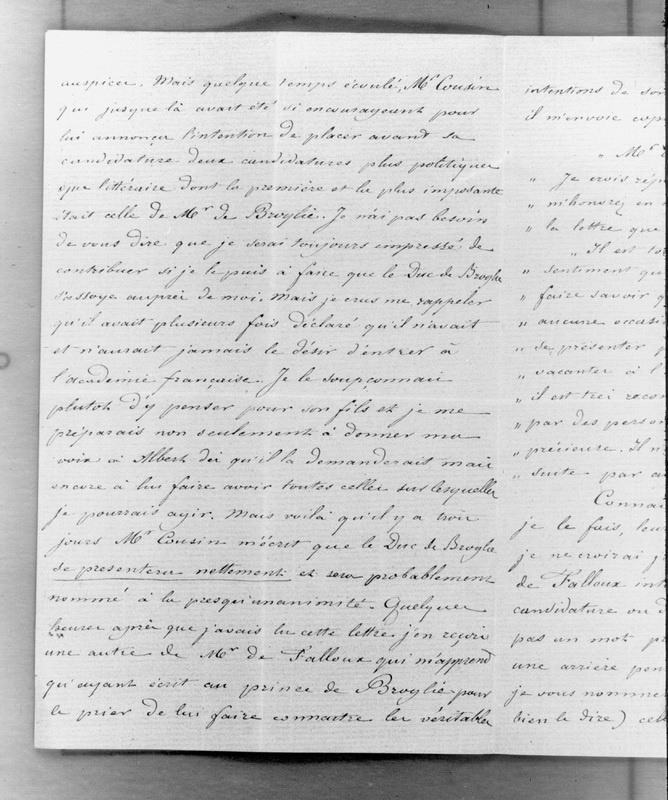 auspices. Mais quelque temps écoulé, Mr Cousin
qui jusque là avait été si encourageant pour
lui annonça l'intention de placer avant sa
candidature deux candidatures plus politiques
que littéraire dont la première et la plus imposante
était celle de Mr de Broglie. Je n'ai pas besoin
de vous dire que je serai toujours empressé de
contribuer si je le puis à faire que le Duc de Broglie
s'assoye auprès de moi. Mais je crus me rappeler
qu'il avait plusieurs fois déclaré qu'il n'avait
et n'aurait jamais le désir d'entrer à
l'académie française. Je le soupçonnais
plutot d'y penser pour son fils et je me
préparais non seulement à donner ma
voix à Albert dès qu'il la demanderait mais
encore à lui faire avoir toutes celles sur lesquelles
je pourrais agir. Mais voilà qu'il y a trois
jours Mr Cousin m'écrit que le Duc de Broglie
se presentera nettement et sera probablement
nommé à la presqu'unanimité. Quelques
heures après que j'avais lu cette lettre j'en reçois
une autre de Mr de Falloux qui m'apprend
qu'ayant écrit au prince de Broglie pour
le prier de lui faire connaitre les véritables
intentions de son
il m'envoie cop
" Mr
" Je crois rép
" m'honorez en
" la lettre que
" Il est to
" sentiment qu
" faire savoir q
" aucune occasi
" de présenter
" vacantes à l'
" il est très recon
" par des person
" précieuse. Il n
" suite par
Connai
je le fais, leu
je ne croirai j
de Falloux int
candidature ou
pas un mot p
une arrière pen
je vous nomme
bien le dire) cel